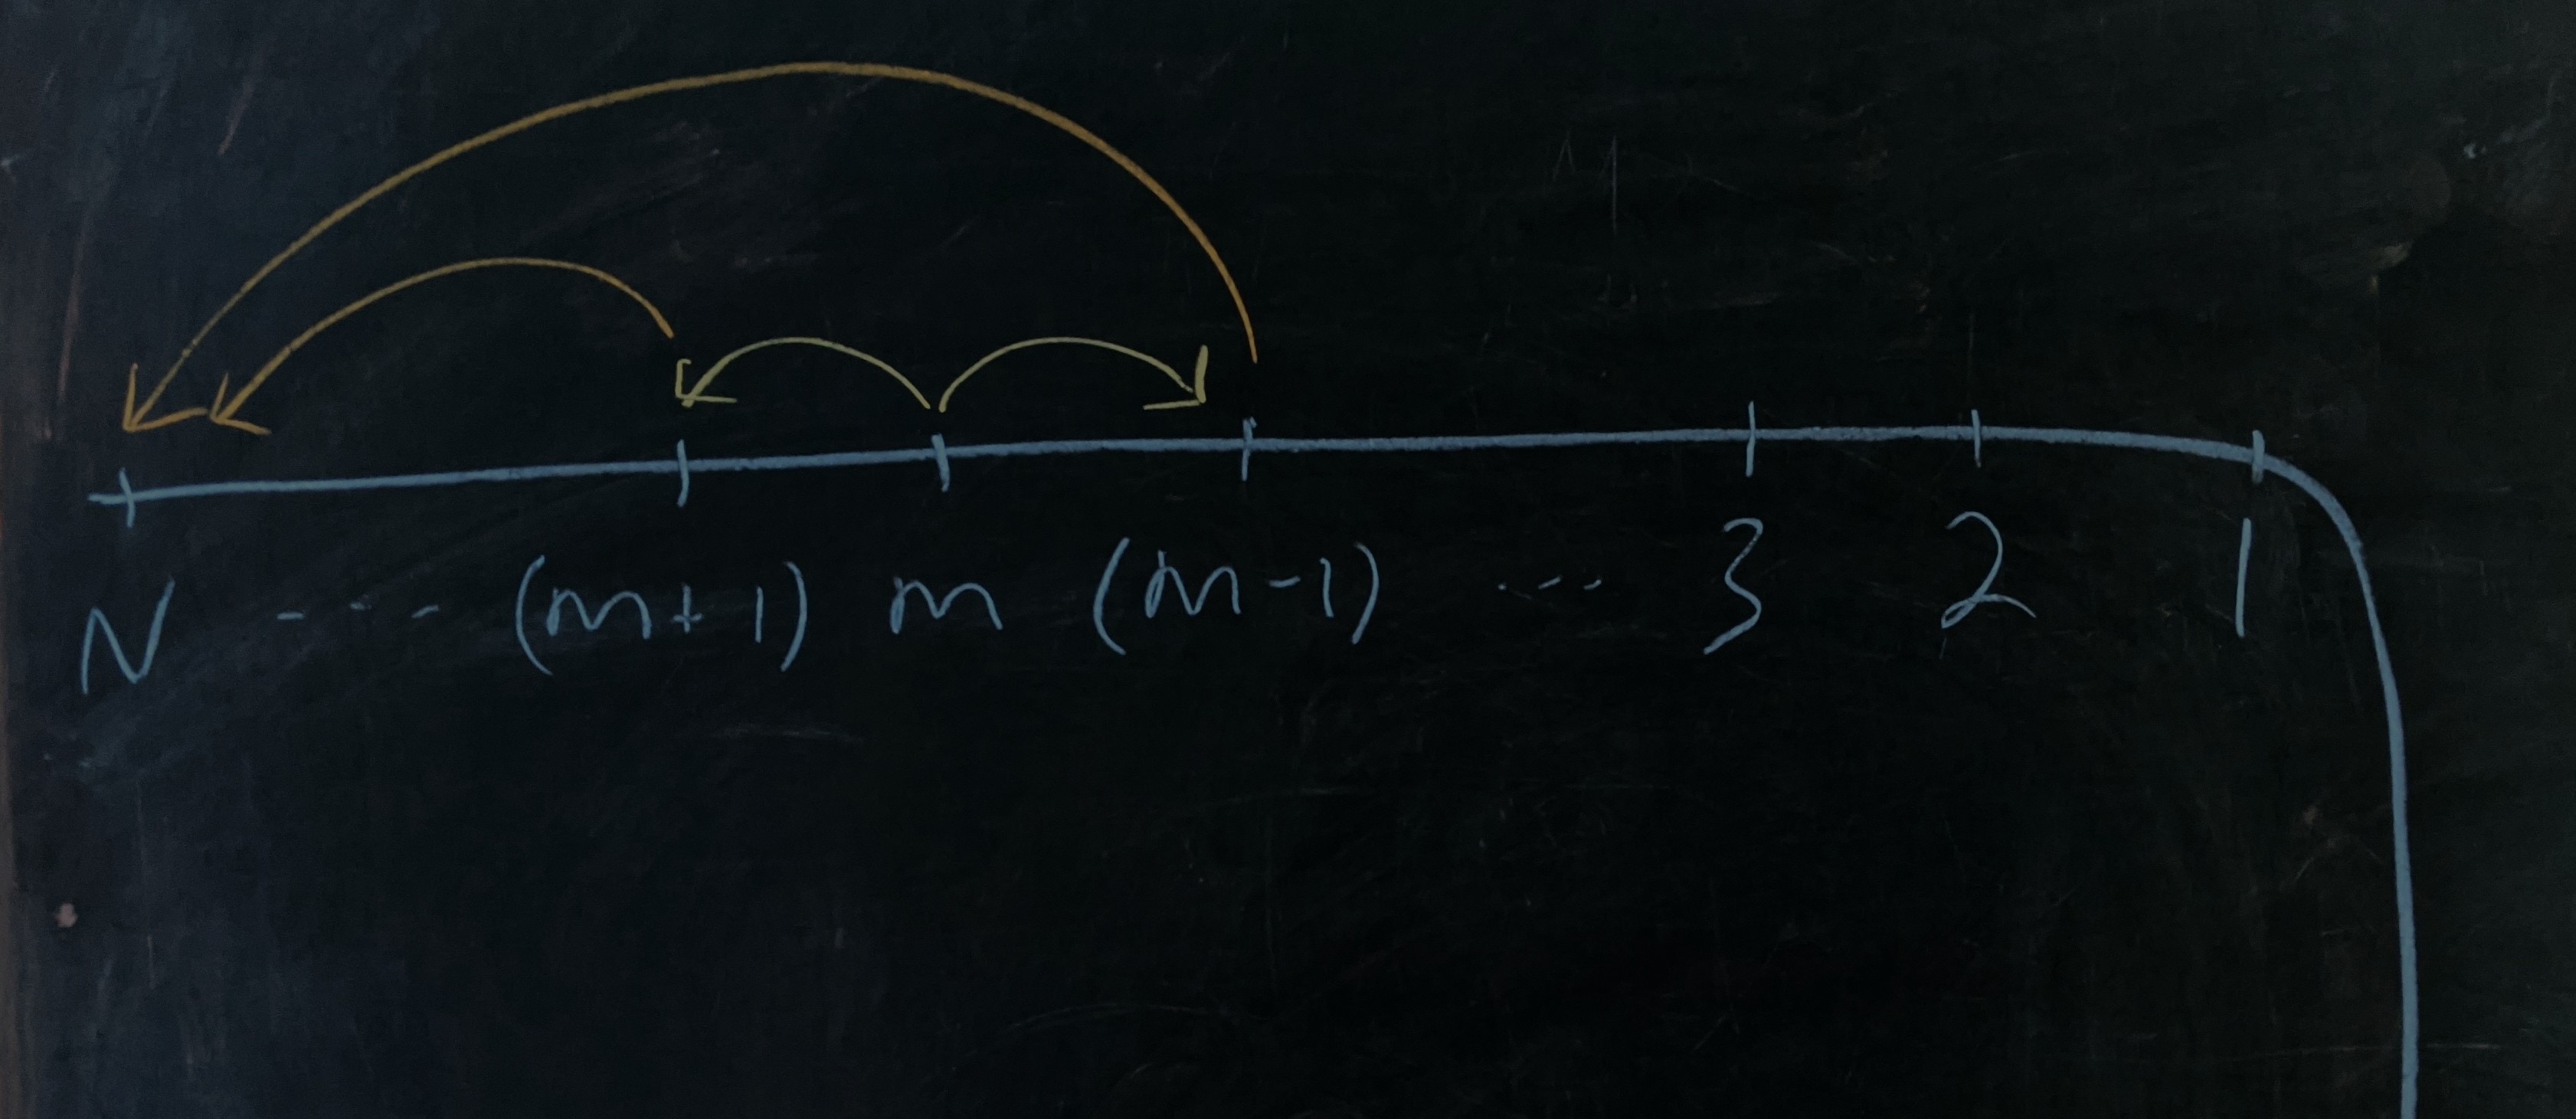 N --- (m+1) m (m-1) --- 3 2 1